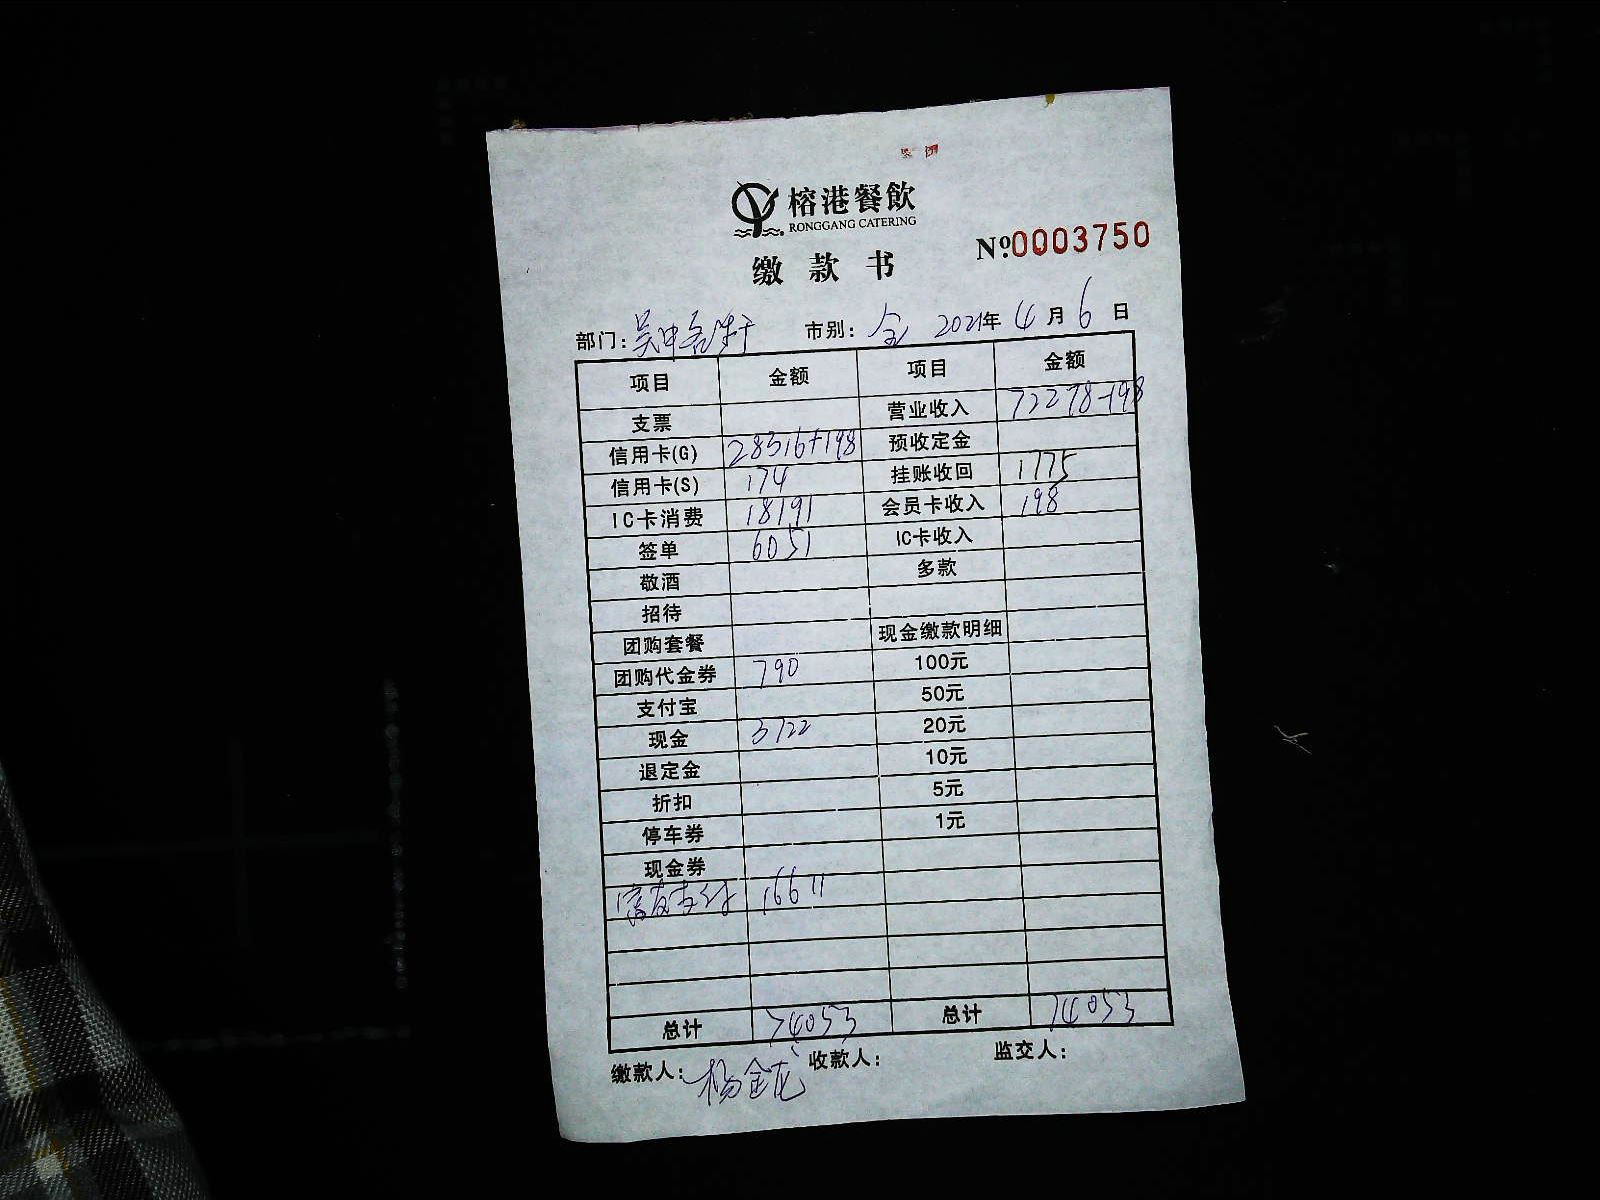 榕港餐飲
RONGGANG CATERING
缴款书
№0003750
部门: 吴中 市别: 全 2021年 4月 6日
项目 金额 项目 金额
支票 营业收入 72278-198
信用卡(G) 28316+198 预收定金
信用卡(S) 174 挂账收回 1775
IC卡消费 18191 会员卡收入 198
签单 6051 IC卡收入
敬酒 多款
招待
团购套餐 现金缴款明细
团购代金券 790 100元
支付宝 50元
现金 3722 20元
退定金 10元
折扣 5元
停车券 1元
现金券
支付 16611
总计 74053 总计 74053
缴款人: 杨金龙 收款人: 监交人: